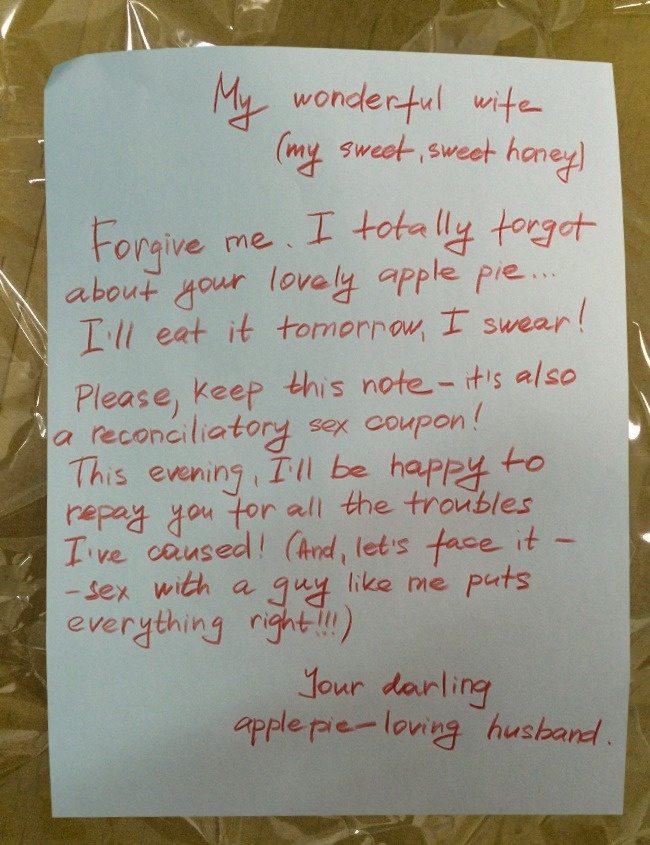 My wonderful wife
(my sweet, sweet honey)
Forgive me. I totally forgot
about your lovely apple pie...
I'll eat it tomorrow, I swear!
Please, keep this note - it's also
a reconciliatory sex coupon!
This evening, I'll be happy to
repay you for all the troubles
I've caused! (And, let's face it -
- sex with a guy like me puts
everything right!!!)
Your darling
apple pie-loving husband.